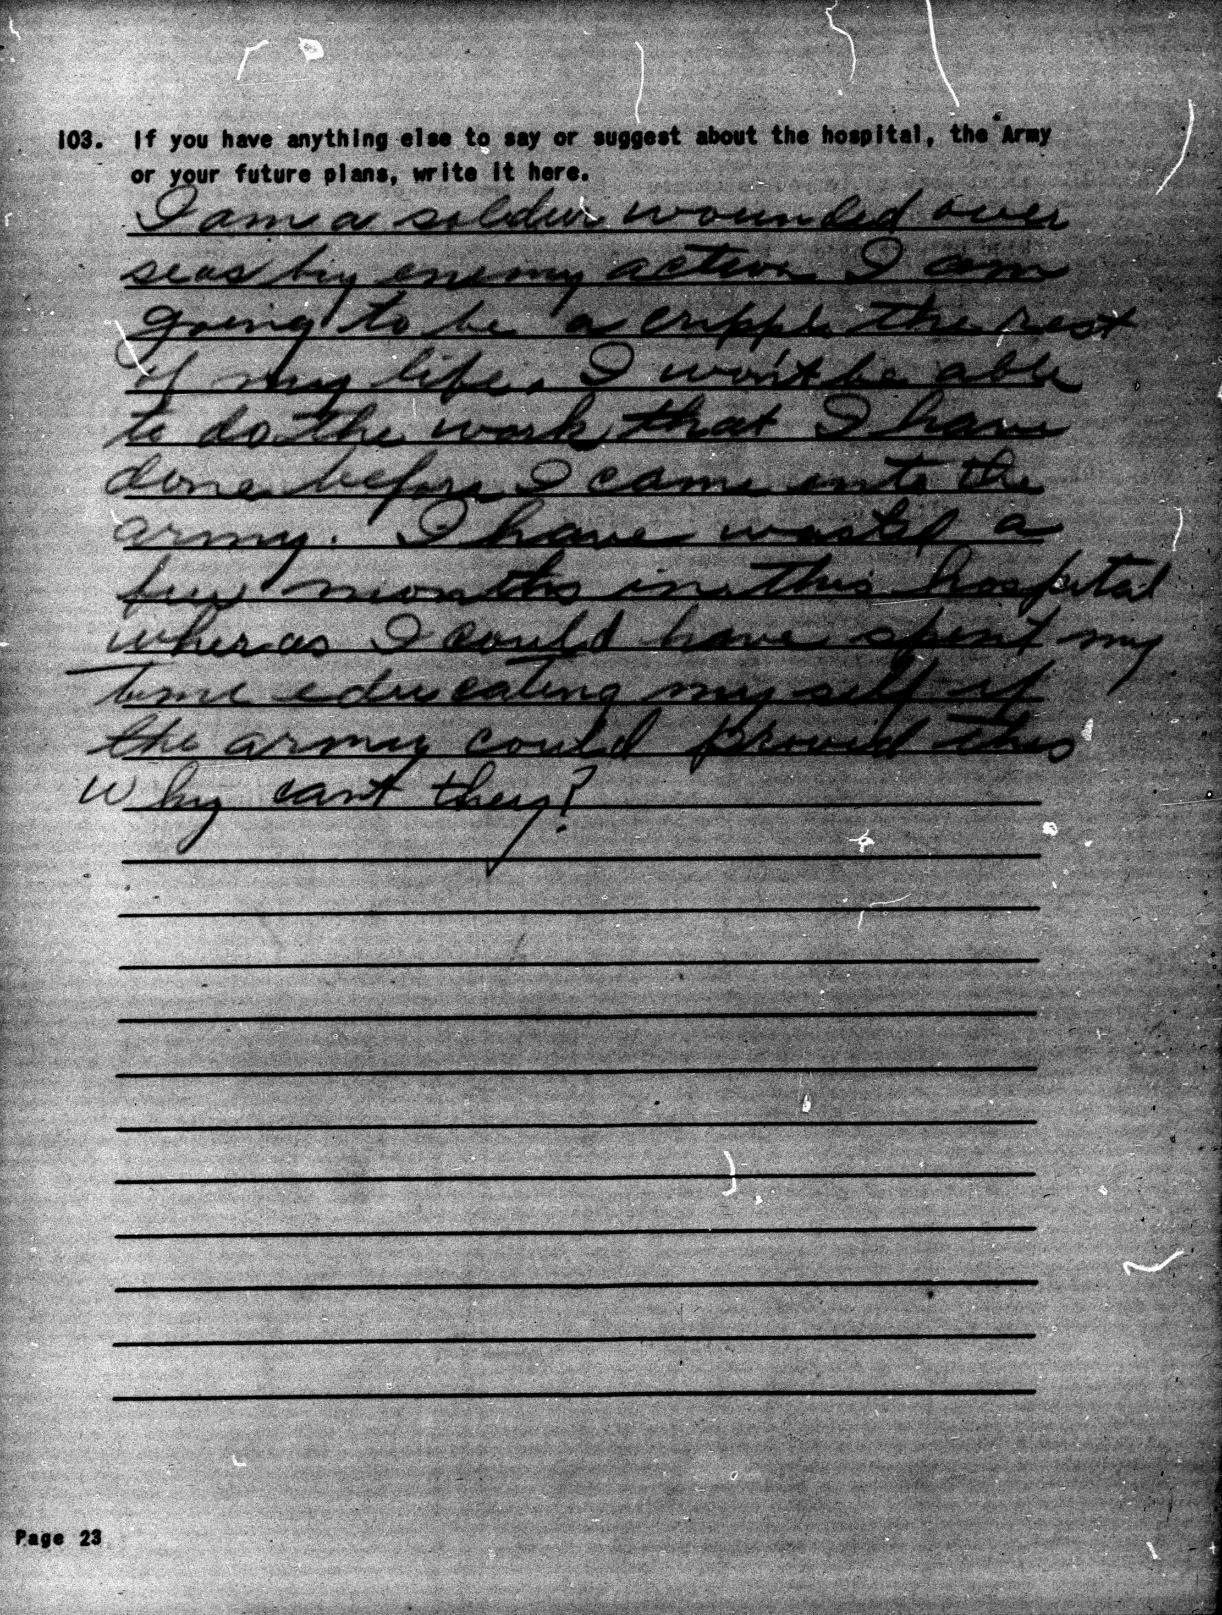 103. If you have anything else to say or suggest about the hospital, the Army
or your future plans, write it here.
I am a soldier wounded over
seas by enemy action I am
going to be a cripple the rest
of my life. I won't be able
to do the work that I have
done before I came into the
army. I have wasted a
few months in this hospital
wheras I could have spent my
time educating my self if
the army could provid this
why cant they?
Page 23